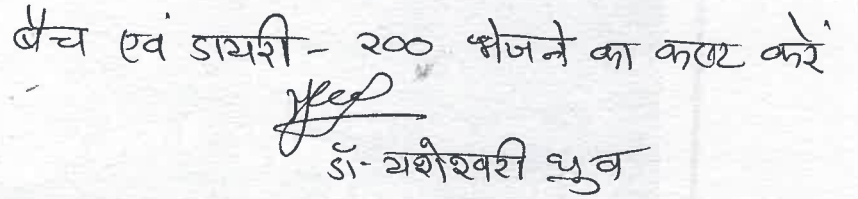 बैच एवं डायरी - २०० भेजने का कष्ट करें
डॉ- यशेश्वरी ध्रुव